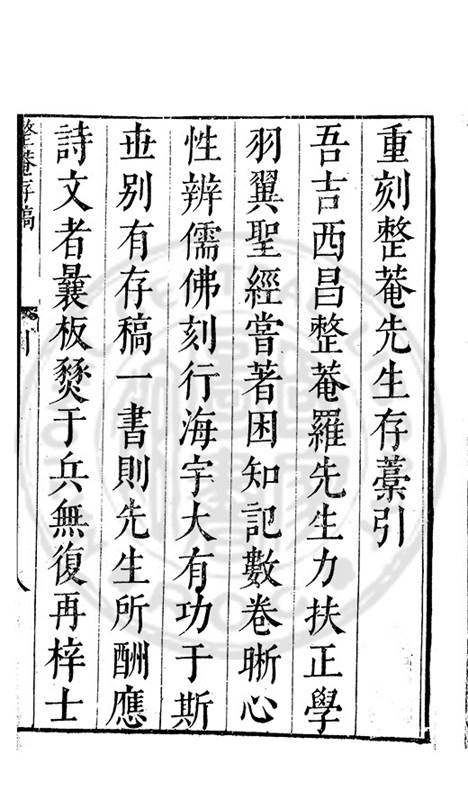 重刻整菴先生存藁引
吾吉西昌整菴羅先生力扶正學
羽翼聖經嘗著困知記數卷晰心
性辨儒佛刻行海宇大有功于斯
世别有存稿一書則先生所酬應
詩文者曩板燹于兵無復再梓士
整菴存稿